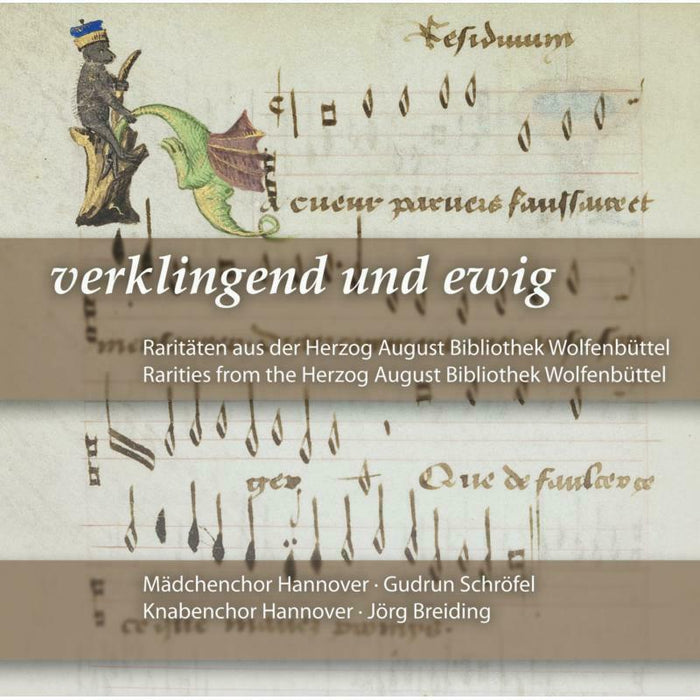 Residuum
cueur parvers faulsaire et
verklingend und ewig
Raritäten aus der Herzog August Bibliothek Wolfenbüttel
Rarities from the Herzog August Bibliothek Wolfenbüttel
Que de
Mädchenchor Hannover · Gudrun Schröfel
Knabenchor Hannover · Jörg Breiding